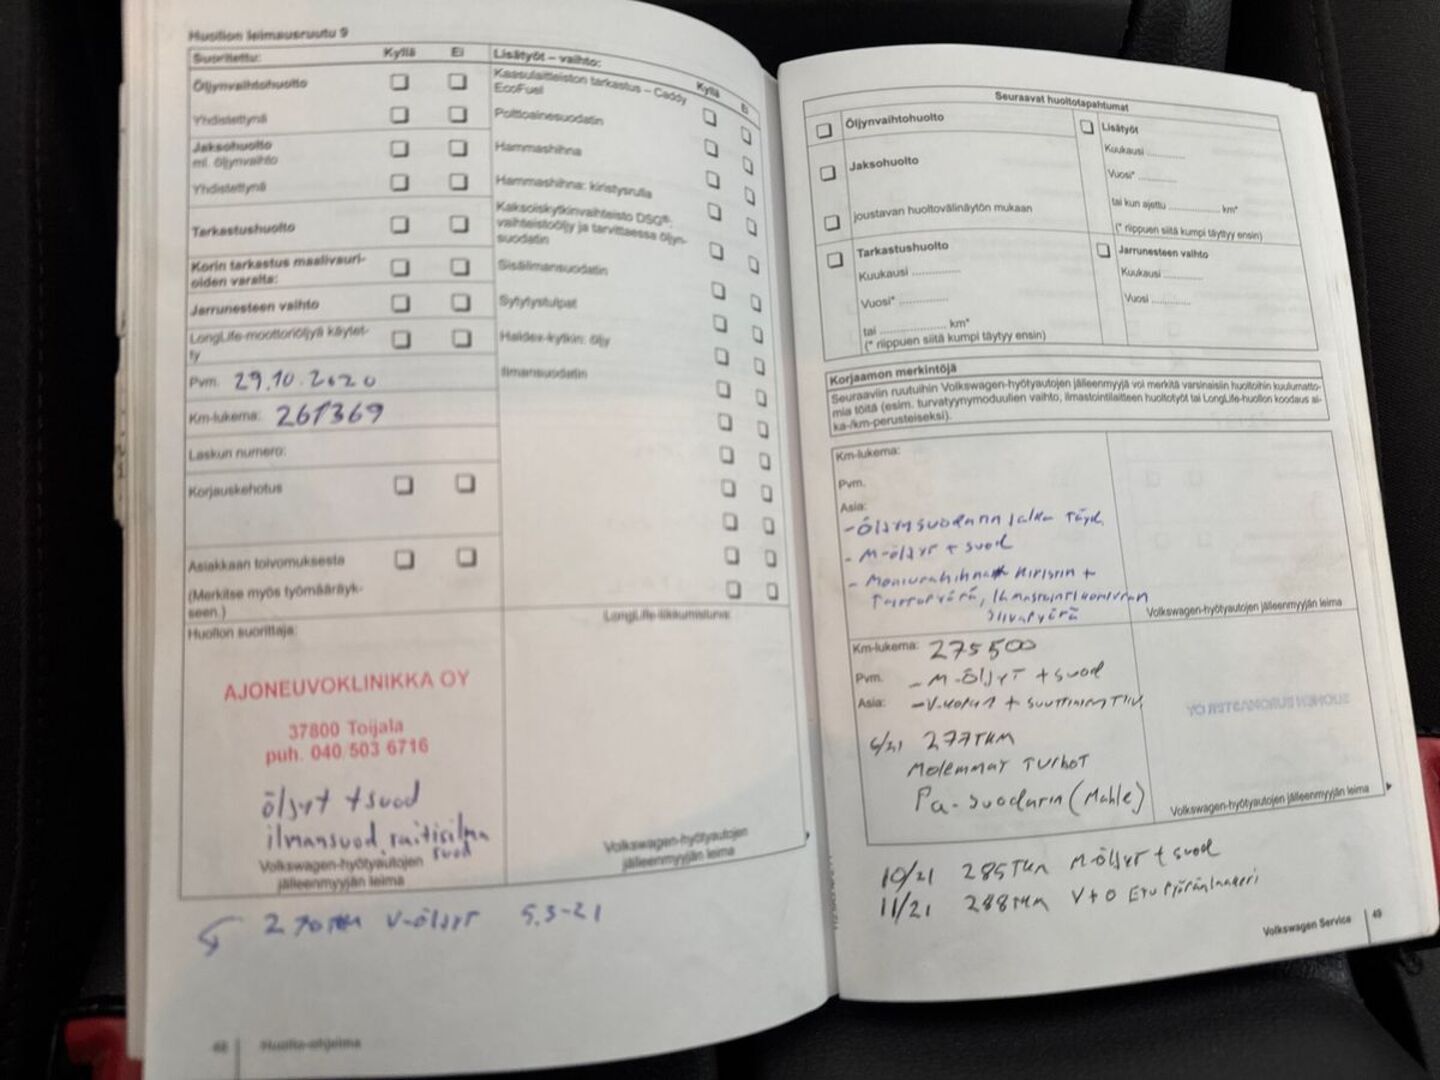 Huollon leimausruutu 9
Suoritettu:
Kyllä
Ei
Öljynvaihtohuolto
Yhdistettynä
Jaksohuolto
ml. öljynvaihto
Yhdistettynä
Tarkastushuolto
Korin tarkastus maalivauri-
oiden varalta:
Jarrunesteen vaihto
LongLife-moottoriöljyä käytet-
ty
Pvm. 29.10.2020
Km-lukema: 261369
Laskun numero:
Korjauskehotus
Asiakkaan toivomuksesta
(Merkitse myös työmääräyk-
seen.)
Huollon suorittaja:
AJONEUVOKLINIKKA OY
37800 Toijala
puh. 040 503 6716
öljyt + suod
ilmansuod, raitisilma
suod
Volkswagen-hyötyautojen
jälleenmyyjän leima
270TKM V-ÖLJYT 5.3-21
48 Huolto-ohjelma
Lisätyöt – vaihto:
Kyllä
Ei
Kaasulaitteiston tarkastus – Caddy
EcoFuel
Polttoainesuodatin
Hammashihna
Hammashihna: kiristysrulla
Kaksoiskytkinvaihteisto DSG®:
vaihteistoöljy ja tarvittaessa öljyn-
suodatin
Sisäilmansuodatin
Sytytystulpat
Haldex-kytkin: öljy
Ilmansuodatin
LongLife-liikkumisturva:
Volkswagen-hyötyautojen
jälleenmyyjän leima
Seuraavat huoltotapahtumat
Öljynvaihtohuolto
Jaksohuolto
joustavan huoltovälinäytön mukaan
Tarkastushuolto
Kuukausi ..............
Vuosi* ..............
tai .................... km*
(* riippuen siitä kumpi täytyy ensin)
Lisätyöt
Kuukausi ............
Vuosi* ............
tai kun ajettu ................ km*
(* riippuen siitä kumpi täyttyy ensin)
Jarrunesteen vaihto
Kuukausi ............
Vuosi ............
Korjaamon merkintöjä
Seuraaviin ruutuihin Volkswagen-hyötyautojen jälleenmyyjä voi merkitä varsinaisiin huoltoihin kuulumatto-
mia töitä (esim. turvatyynymoduulien vaihto, ilmastointilaitteen huoltotyöt tai LongLife-huollon koodaus ai-
ka-/km-perusteiseksi).
Km-lukema:
Pvm.
Asia:
- ÖLJYNSUODATIN jalka Täyd.
- M-ÖLJYT + suod
- Moniurahihna KIRISTIN +
TAITTOPYÖRÄ,
OLIVAPYÖRÄ
Volkswagen-hyötyautojen jälleenmyyjän leima
Km-lukema: 275500
Pvm. - M-ÖLJYT + suod
Asia: - V-KOPAN + SUUTTIMIEN TIIV.
6/21 277TKM
Molemmat TURBOT
Pa-suodatin (Mahle)
SUOMEN EUROMASTER OY
Volkswagen-hyötyautojen jälleenmyyjän leima
10/21 285TKM M-ÖLJYT + suod
11/21 288TKM V+O ETUPYÖRÄNLAAKERI
Volkswagen Service 49